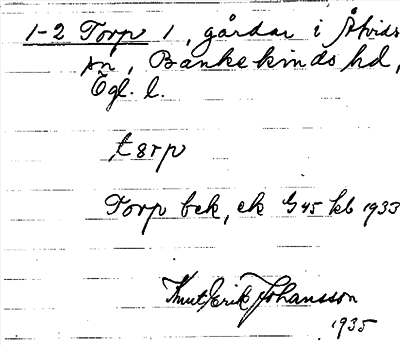 1-2 Torp 1, gårdar i Åtvids
sn, Bankekinds hd,
Ögl. l.
tårp
Torp bek, ek G45 kb 1933
Knut Erik Johansson
1935